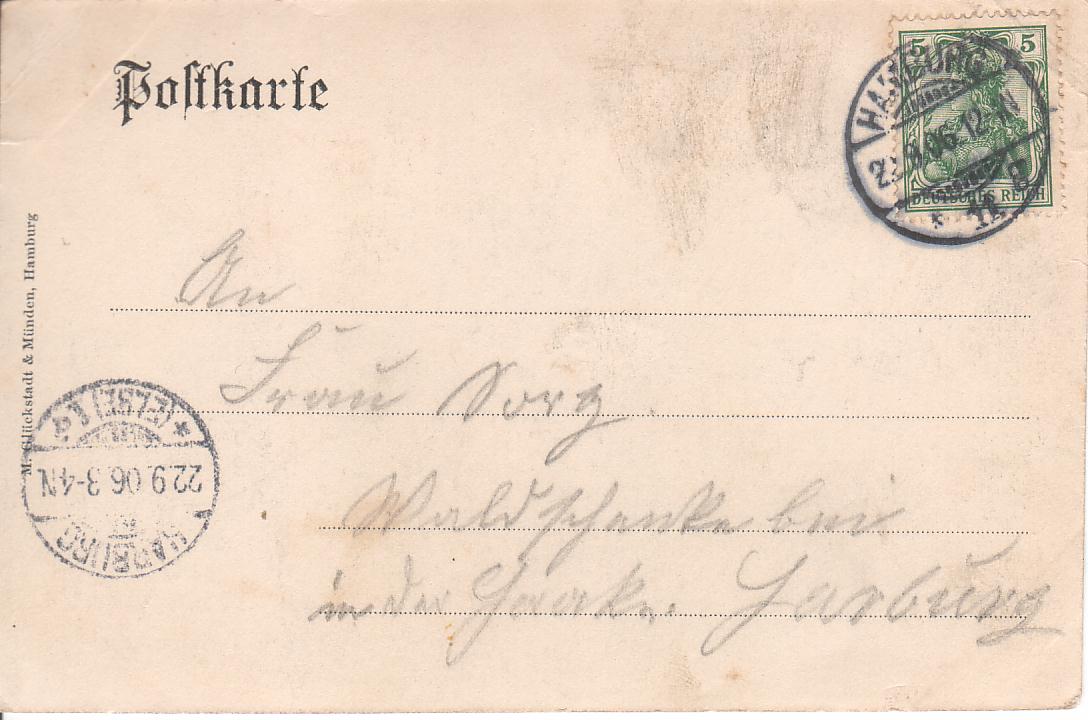 Postkarte
5 5
DEUTSCHES REICH
HAMBURG
22.9.06.12-N
* 11 g
An
Frau Sorg.
Waldschenke bei
in der Haake. Harburg
M. Glückstadt & Münden, Hamburg
HARBURG
22.9.06.3-4N
* (ELBE) 1